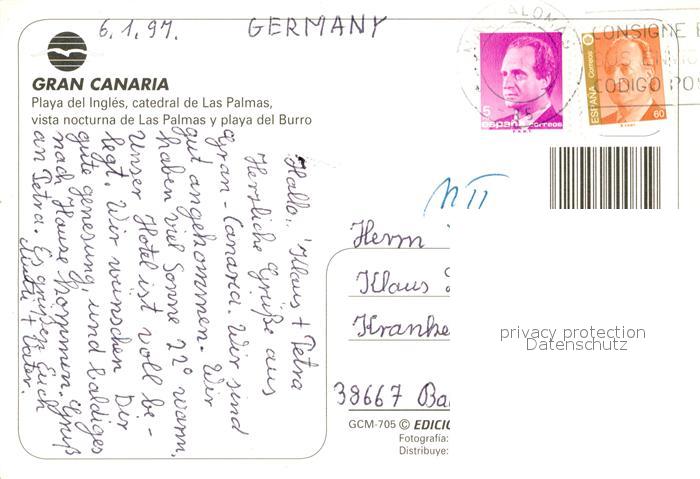 6.1.97. GERMANY
GRAN CANARIA
Playa del Inglés, catedral de Las Palmas,
vista nocturna de Las Palmas y playa del Burro
Hallo, Klaus + Petra
Herzliche Grüße aus
Gran-Canaria. Wir sind
gut angekommen. Wir
haben viel Sonne 22° warm,
Unser Hotel ist voll be-
legt. Wir wünschen Dir
gute genesung, und baldiges
nach Hause kommen. Gruß
an Petra. Es grüßen Euch
Mutti + Vater.
5
España correos
60
ESPAÑA Correos
CONSIGNE E
SUS ENVIO
CODIGO POS
Herrn
Klaus
Kranke
38667 Ba
privacy protection
Datenschutz
GCM-705 © EDICIO
Fotografía:
Distribuye: